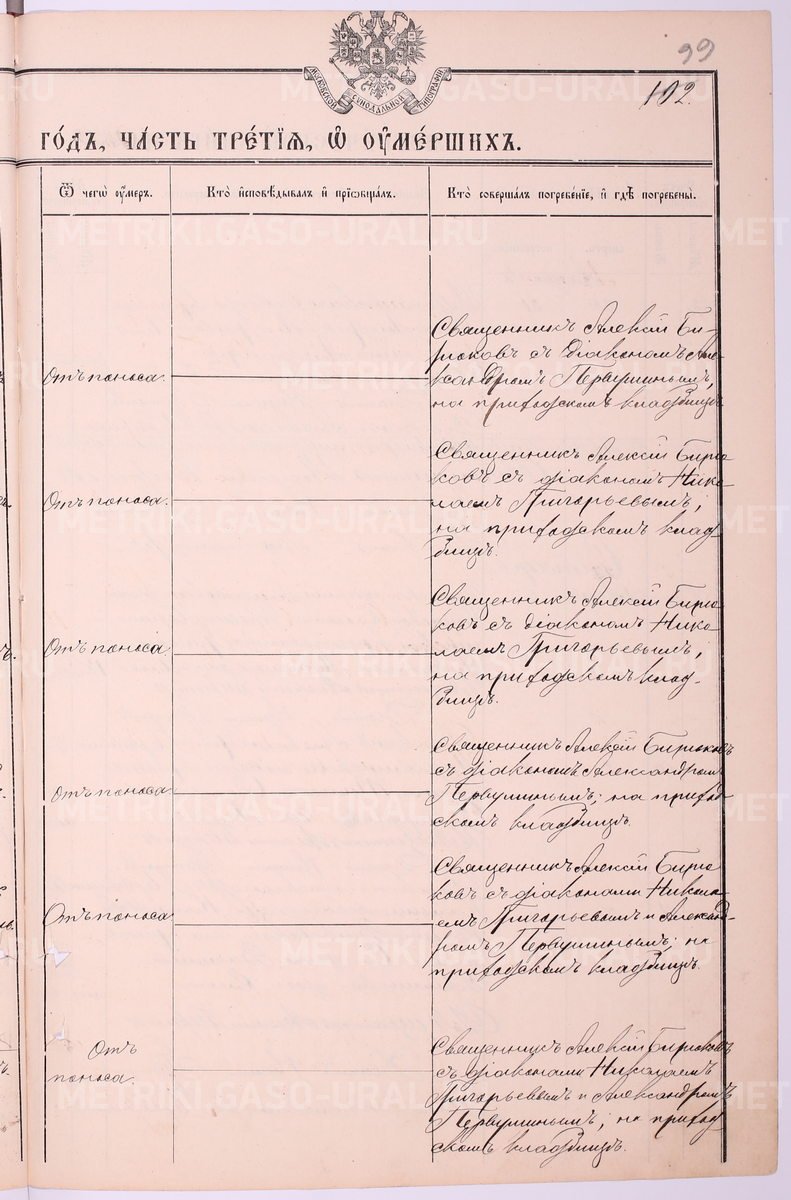 99
102.
МОСКОВСКОЙ СѴНОДАЛЬНОЙ ТИПОГРАФІИ
ГО́ДЪ, ЧА́СТЬ ТРЕ́ТІЯ, Ѽ ОУ҆МЕ́РШИХЪ.
Ѿ чегѡ̀ оу҆́меръ.
Кто̀ и҆сповѣ́дывалъ и҆ прїѡбща́лъ.
Кто̀ соверша́лъ погребе́нїе, и҆ гдѣ̀ погребены̀.
Отъ поноса.
Священникъ Алексій Би-
рюковъ съ діакономъ Але-
ксандромъ Первушинымъ,
на приходскомъ кладбищѣ
Отъ поноса.
Священникъ Алексій Бирю-
ковъ съ діакономъ Нико-
лаемъ Григорьевымъ;
на приходскомъ клад-
бищѣ.
Отъ поноса
Священникъ Алексій Бирю
ковъ съ діакономъ Нико
лаемъ Григорьевымъ,
на приходскомъ клад-
бищѣ.
Отъ поноса
Священникъ Алексій Бирюковъ
съ діакономъ Александромъ
Первушинымъ; на приход
скомъ кладбищѣ.
Отъ поноса
Священникъ Алексій Бирю
ковъ съ діаконами Никола-
емъ Григорьевымъ и Александ-
ромъ Первушинымъ; на
приходскомъ кладбищѣ.
Отъ
поноса.
Священникъ Алексій Бирюковъ
съ діаконами Николаемъ
Григорьевымъ и Александромъ
Первушинымъ; на приход
скомъ кладбищѣ.
METRIKI.GASO-URAL.RU